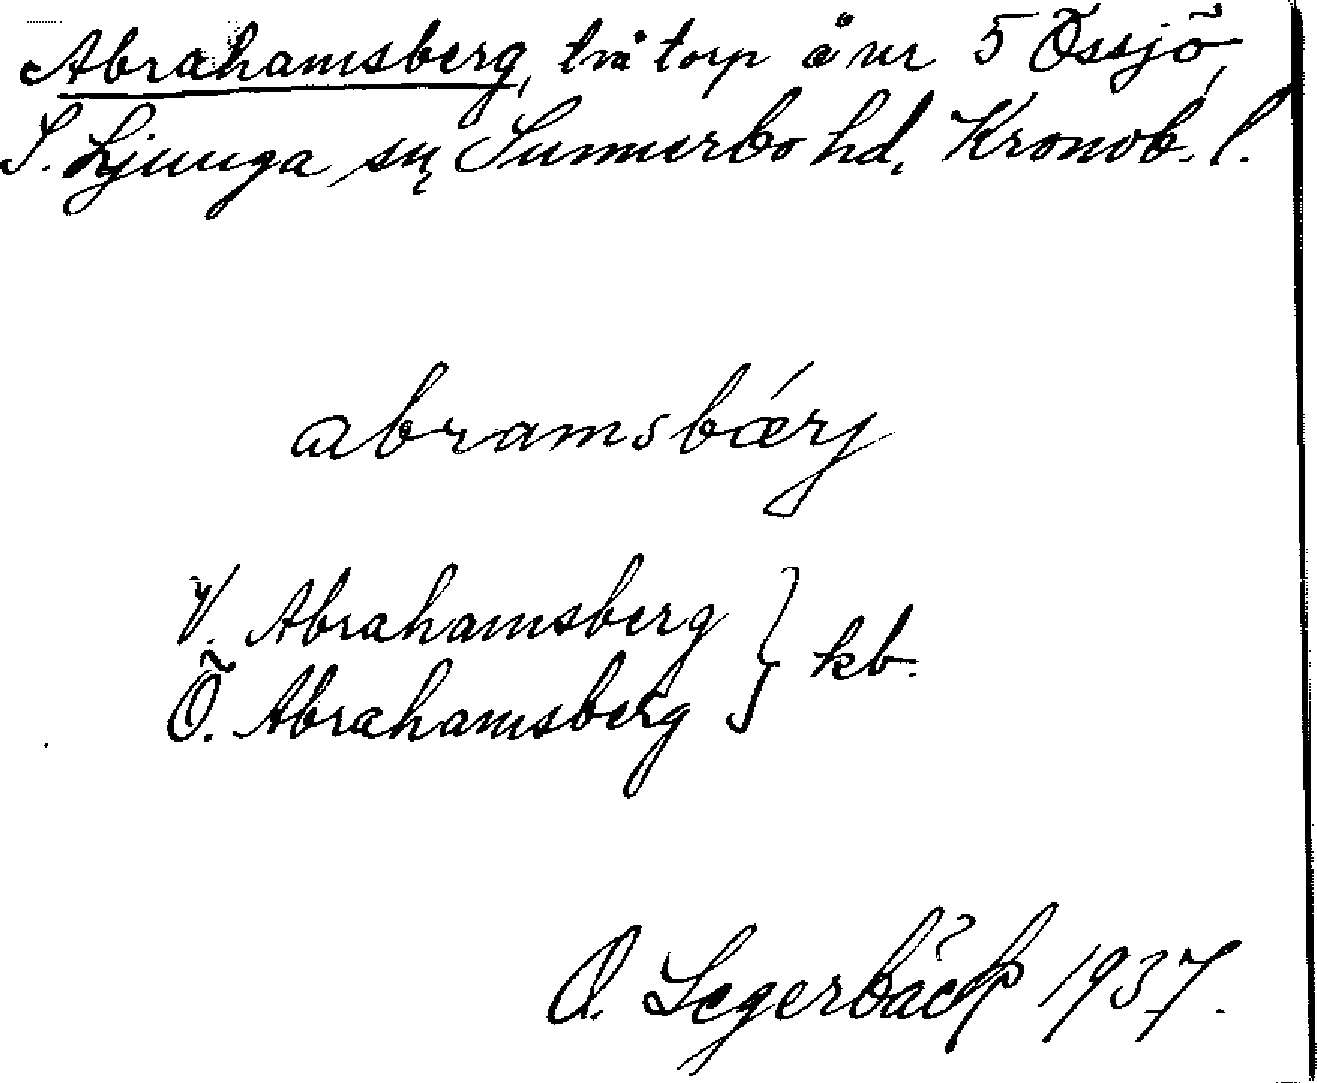 Abrahamsberg, två torp å nr 5 Össjö,
S. Ljunga sn, Sunnerbo hd, Kronob. l.
abramsbǽrj
V. Abrahamsberg
Ö. Abrahamsberg } kb.
O. Segerbäck 1937.